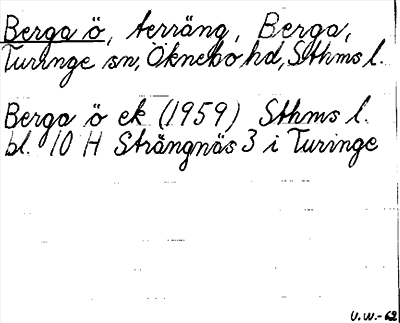 Berga ö, terräng, Berga,
Turinge sn, Öknebo hd, Sthms l.
Berga ö ek (1959) Sthms l.
bl. 10 H Strängnäs 3 i Turinge
U.W.-62